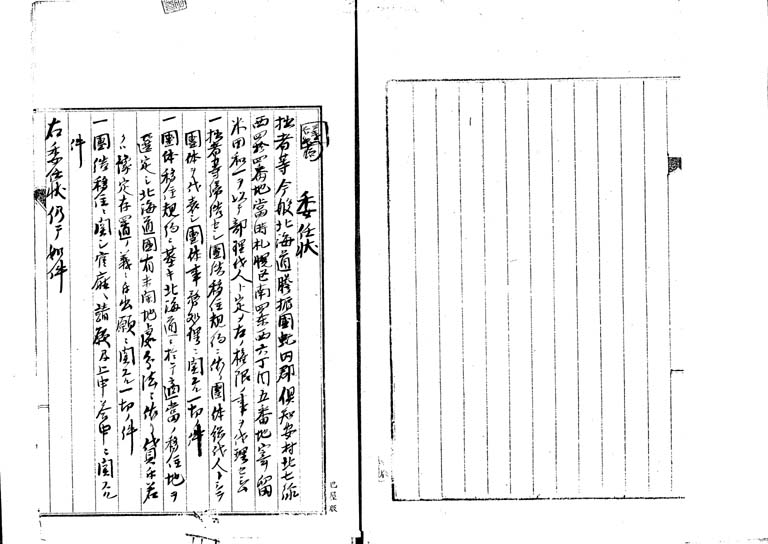 委任状
拙者等今般北海道膽振國虻田郡倶知安村北七線
西四拾四番地當時札幌区南四条西六丁目五番地寄留
米田和一ヲ以テ部理代人ト定メ左ノ権限ノ事ヲ代理セシム
一拙者等締結セシ團体移住規約ニ依リ團体総代人トシテ
團体ヲ代表シ團体事務処理ニ関スル一切ノ件
一團体移住規約ニ基キ北海道ニ於テ適當ノ移住地ヲ
選定シ北海道國有未開地處分法ニ依リ貸下若
クハ豫定存置ノ義ニ付出願ニ関スル一切ノ件
一團体移住ニ関シ官廳ヘ諸願及上申答申ニ関スル
件
右委任状仍テ如件